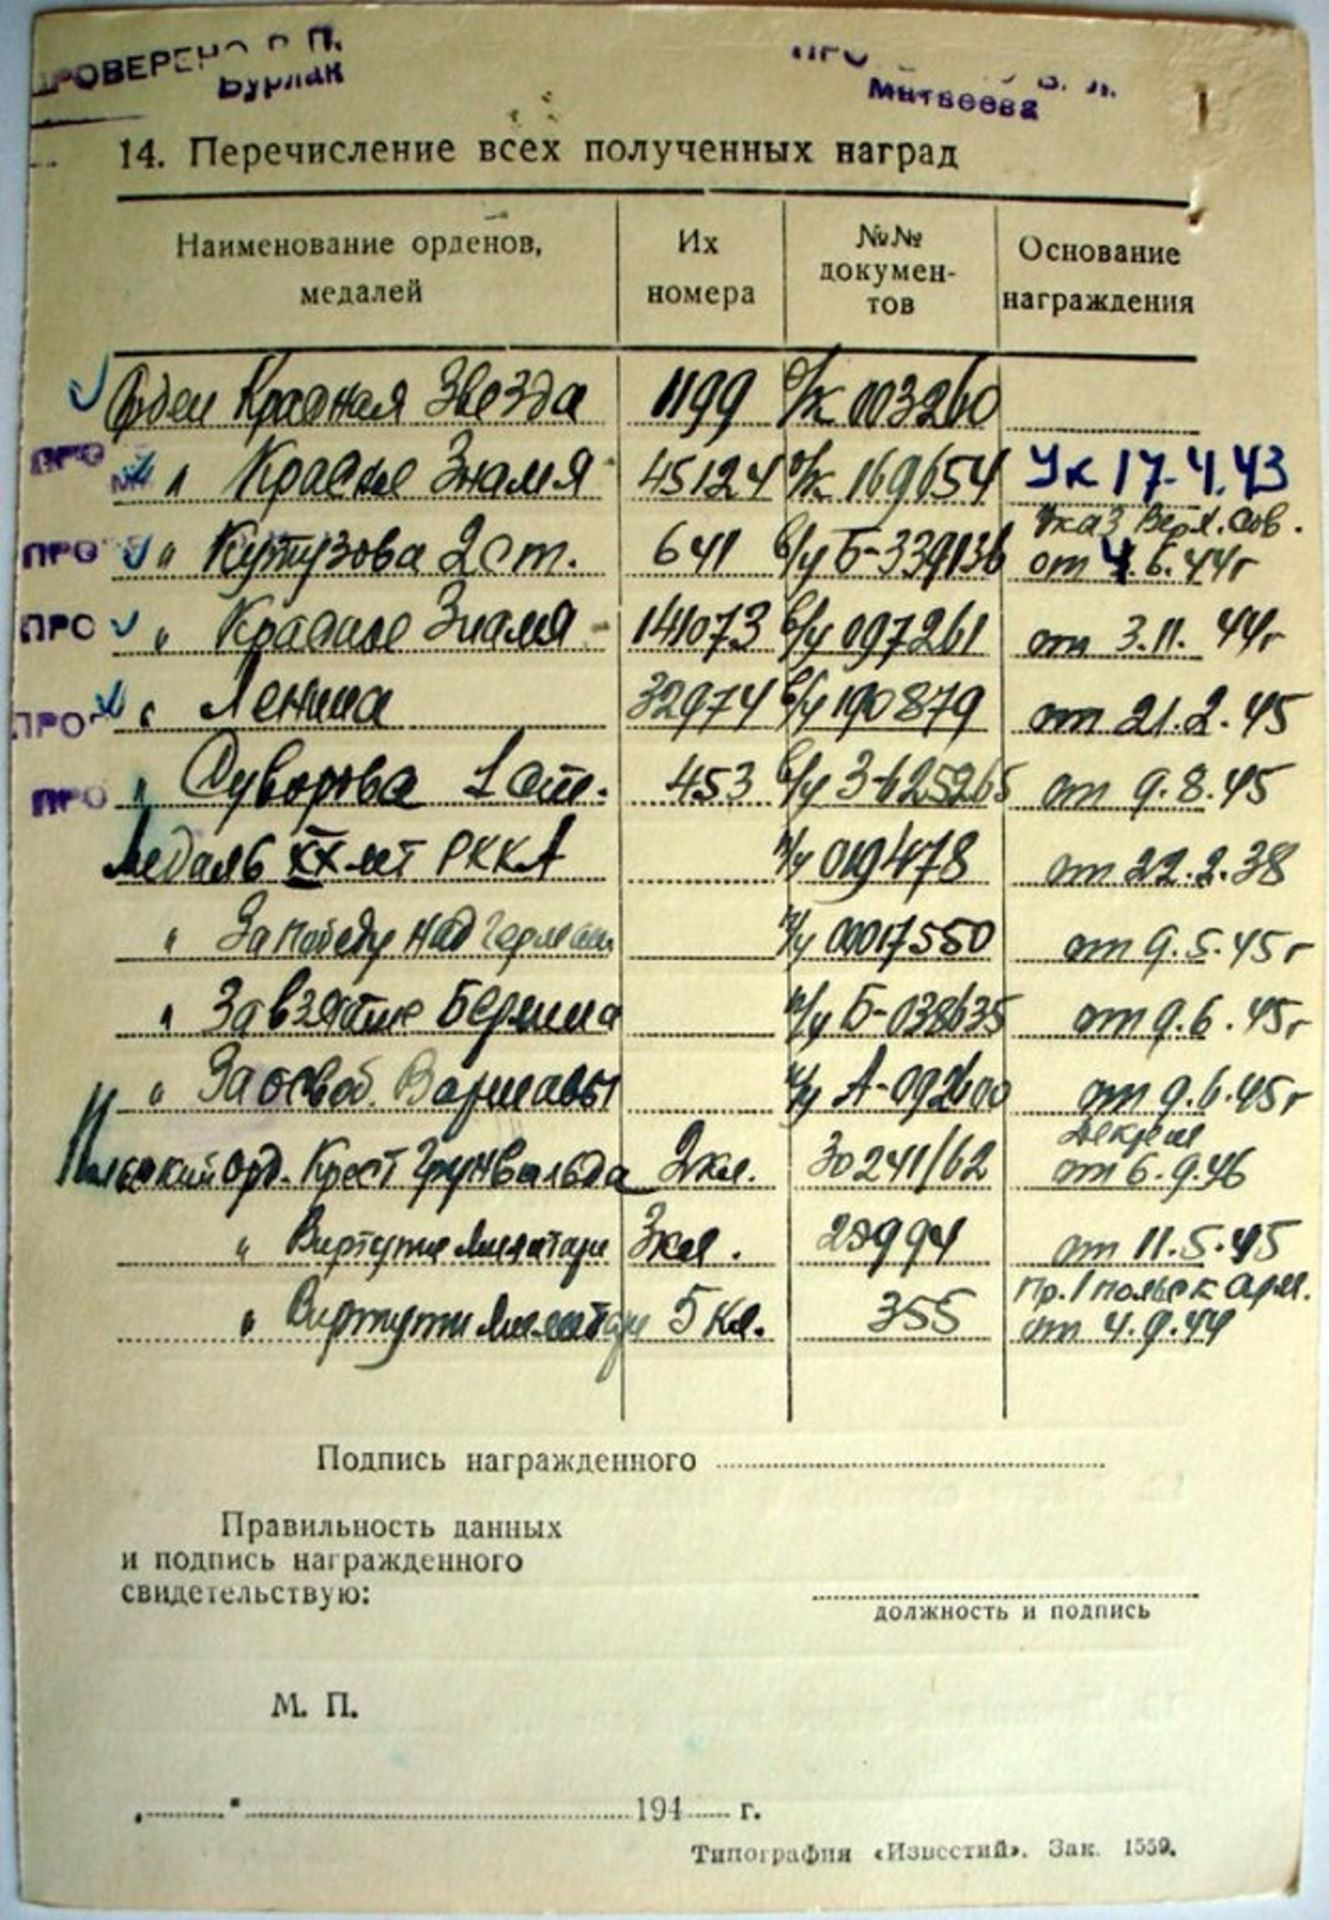 ПРОВЕРЕНО
Бурлак
Матвеева
14. Перечисление всех полученных наград
Наименование орденов, медалей Их номера №№ документов Основание награждения
Орден Красная Звезда 1199 о/к 003260
ПРО " Красное Знамя 45124 о/к 169654 Ук 17.4.43
Указ Верх. Сов.
ПРО " Кутузова 2 ст. 641 в/у Б-339136 от 4.6.44 г
ПРО " Красное Знамя 141073 в/у 097261 от 3.11.44 г
ПРО " Ленина 32974 в/у 190879 от 21.2.45
ПРО " Суворова 1 ст. 453 в/у 3-625265 от 9.8.45
Медаль XX лет РККА 019478 от 22.2.38
" За победу над Герман 0017550 от 9.5.45 г
" За взятие Берлина Б-038635 от 9.6.45 г
" За освоб. Варшавы А-092600 от 9.6.45 г
Декрет
Польский орд. Крест Грунвальда 2 кл. 30241/62 от 6.9.46
" Виртути Милитари 3 кл. 29994 от 11.5.45
Пр. 1 польск арм.
" Виртути Милитари 5 кл. 355 от 4.9.44
Подпись награжденного
Правильность данных
и подпись награжденного
свидетельствую:
должность и подпись
М. П.
194 г.
Типография «Известий». Зак. 1559.